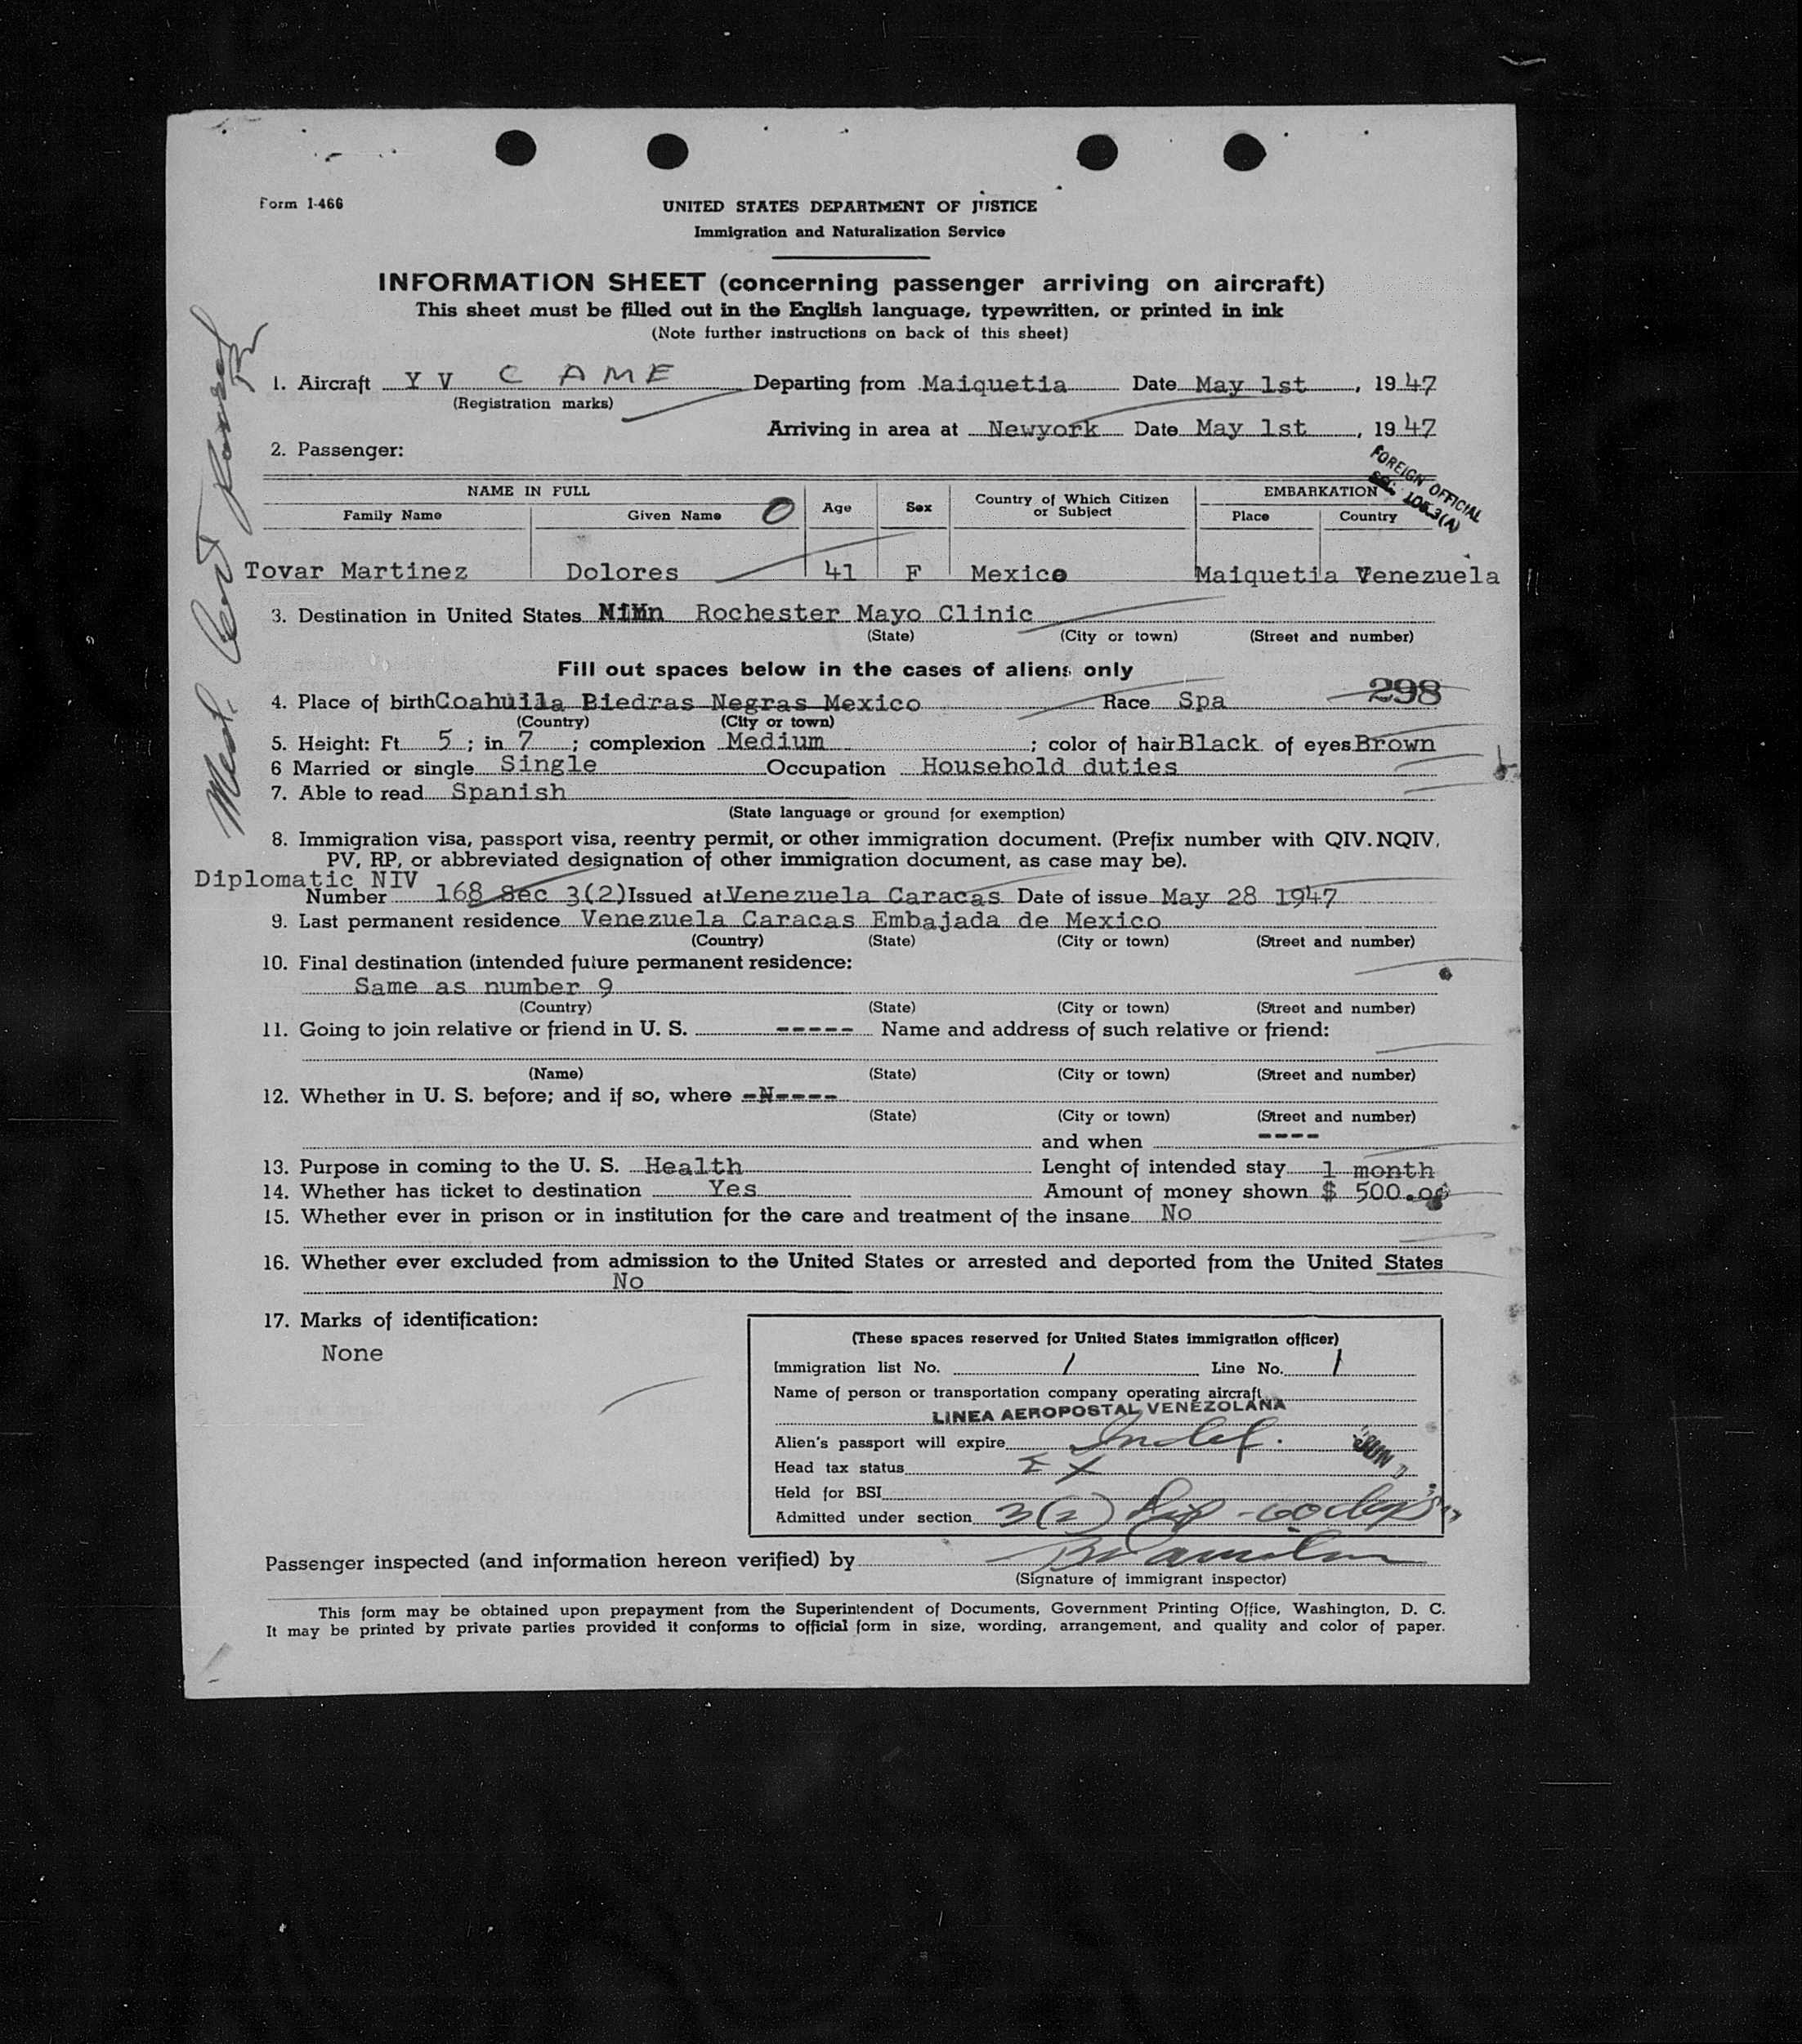 Form I-466
UNITED STATES DEPARTMENT OF JUSTICE
Immigration and Naturalization Service
INFORMATION SHEET (concerning passenger arriving on aircraft)
This sheet must be filled out in the English language, typewritten, or printed in ink
(Note further instructions on back of this sheet)
1. Aircraft Y V C A M E Departing from Maiquetia Date May 1st, 1947
(Registration marks)
Arriving in area at Newyork Date May 1st, 1947
2. Passenger:
FOREIGN OFFICIAL
SEC. 105.3(A)
NAME IN FULL Age Sex Country of Which Citizen or Subject EMBARKATION
Family Name Given Name O Place Country
Tovar Martinez Dolores 41 F Mexico Maiquetia Venezuela
3. Destination in United States Minn Rochester Mayo Clinic
(State) (City or town) (Street and number)
Fill out spaces below in the cases of aliens only
298
4. Place of birth Coahuila Biedras Negras Mexico Race Spa
(Country) (City or town)
5. Height: Ft 5; in 7; complexion Medium; color of hair Black of eyes Brown
6 Married or single Single Occupation Household duties
7. Able to read Spanish
(State language or ground for exemption)
8. Immigration visa, passport visa, reentry permit, or other immigration document. (Prefix number with QIV. NQIV,
PV, RP, or abbreviated designation of other immigration document, as case may be).
Diplomatic NIV
Number 168 Sec 3(2) Issued at Venezuela Caracas Date of issue May 28 1947
9. Last permanent residence Venezuela Caracas Embajada de Mexico
(Country) (State) (City or town) (Street and number)
10. Final destination (intended future permanent residence:
Same as number 9
(Country) (State) (City or town) (Street and number)
11. Going to join relative or friend in U. S. ----- Name and address of such relative or friend:
(Name) (State) (City or town) (Street and number)
12. Whether in U. S. before; and if so, where -N----
(State) (City or town) (Street and number)
and when ----
13. Purpose in coming to the U. S. Health Lenght of intended stay 1 month
14. Whether has ticket to destination Yes Amount of money shown $ 500.00
15. Whether ever in prison or in institution for the care and treatment of the insane No
16. Whether ever excluded from admission to the United States or arrested and deported from the United States
No
17. Marks of identification:
None
(These spaces reserved for United States immigration officer)
Immigration list No. 1 Line No. 1
Name of person or transportation company operating aircraft
LINEA AEROPOSTAL VENEZOLANA
Alien's passport will expire Indef. JUN
Head tax status EX
Held for BSI
Admitted under section 3(2) 60 days
Passenger inspected (and information hereon verified) by
(Signature of immigrant inspector)
This form may be obtained upon prepayment from the Superintendent of Documents, Government Printing Office, Washington, D. C.
It may be printed by private parties provided it conforms to official form in size, wording, arrangement, and quality and color of paper.